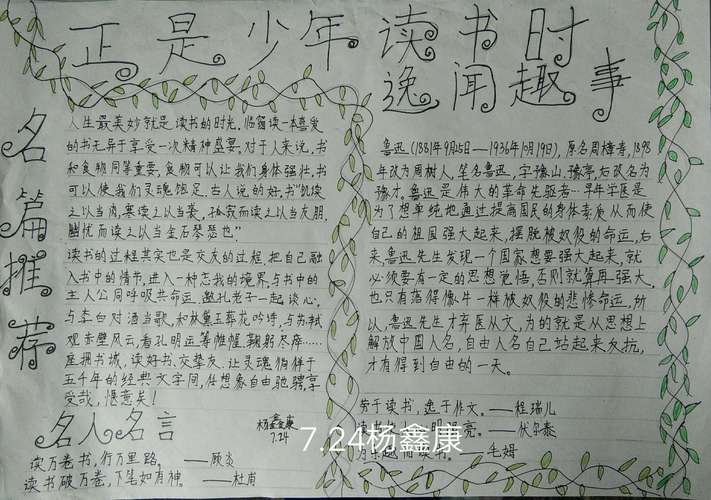 正是少年读书时
名篇推荐
人生最美妙就是读书的时光，临窗读一本喜爱
的书无异于享受一次精神盛宴，对于人来说，书
和食物同等重要，食物可以让我们身体强壮，书
可以使我们灵魂饱足，古人说的好，书"饥读
之以当肉，寒读之以当裘，孤寂而读之以当友朋，
幽忧而读之以当金石琴瑟也."
读书的过程其实也是交友的过程，把自己融
入书中的情节，进入一种忘我的境界，与书中的
主人公同呼吸共命运，邀孔老子一起谈心，
与李白对酒当歌，和林黛玉葬花吟诗，与苏轼
观赤壁风云，看孔明运筹帷幄，鞠躬尽瘁……
座拥书城，读好书、交挚友，让灵魂徜徉于
五千年的经典文字间，任想象自由驰骋，享
受哉，惬意矣！
名人名言
杨鑫康
7.24
读万卷书，行万里路。——顾炎
读书破万卷，下笔如有神。——杜甫
逸闻趣事
鲁迅（1881年9月25日—1936年10月19日），原名周樟寿，1898
年改为周树人，笔名鲁迅，字豫山，豫亭，后改名为
豫才。鲁迅是伟大的革命先驱者…早年学医是
为了想单纯地通过提高国民的身体素质从而使
自己的祖国强大起来，摆脱被奴役的命运，后
来，鲁迅先生发现一个国家想要强大起来，就
必须要有一定的思想觉悟，否则就算再强大，
也只有落得像牛一样被奴役的悲惨命运，所
以，鲁迅先生才弃医从文，为的就是从思想上
解放中国人名，自由人名自己站起来反抗，
才有得到自由的一天。
劳于读书，逸于作文。——程瑞儿
亮。——伏尔泰
为 而读书。 毛姆
7.24杨鑫康